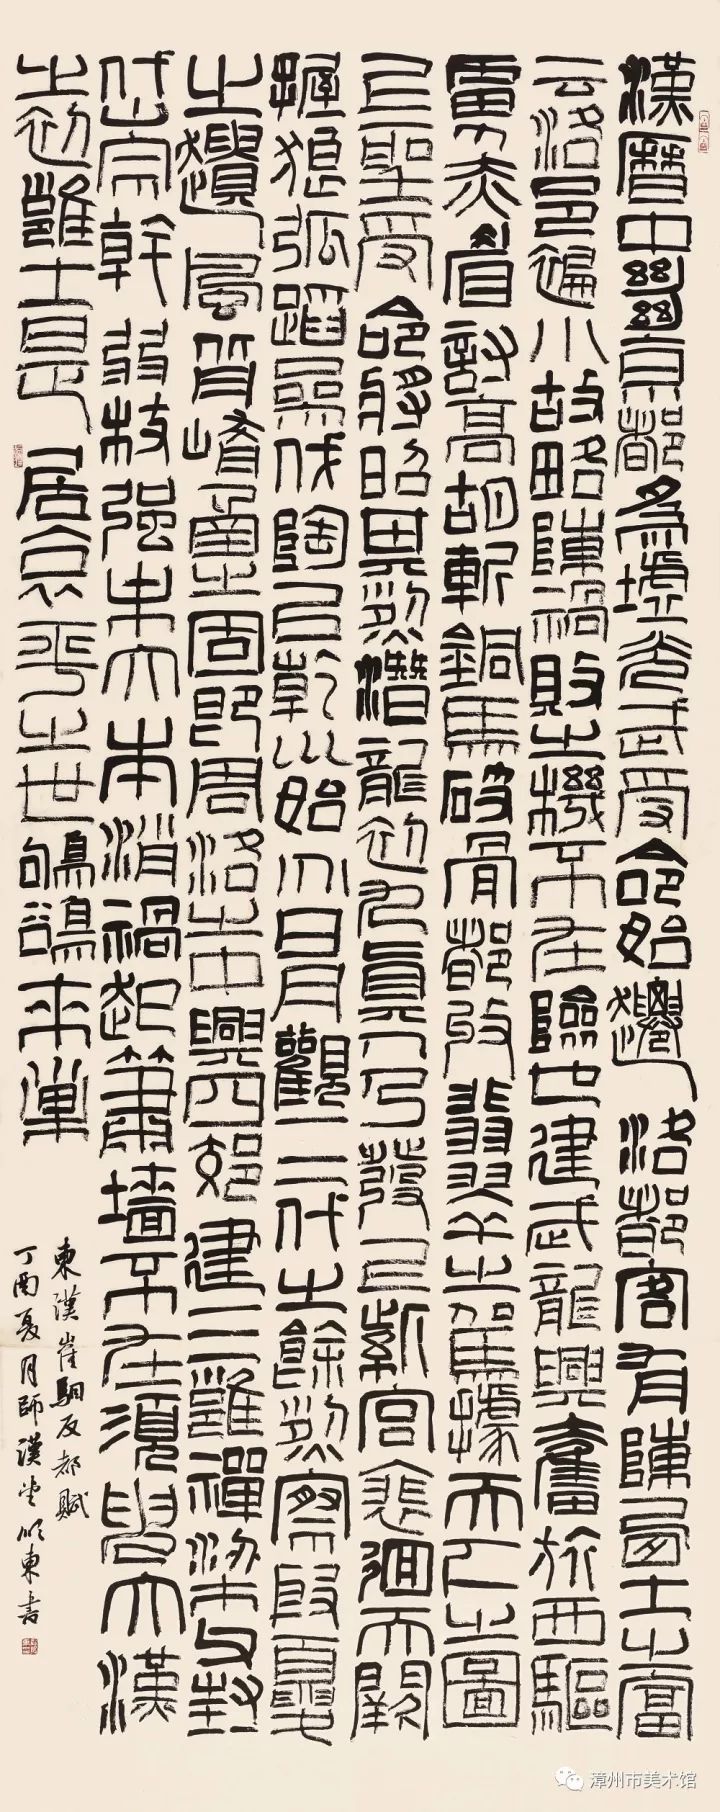 漢曆中絕京都為墟光武受命始遷洛都客有陳西土之富
云洛邑褊小故略陳禍敗之機不在險也建武龍興奮旅西驅
虜赤眉討高胡斬銅馬破骨都收翡翠之駕據天下之圖
以聖受命將昭其烈潛龍初九真人乃發以紫宮裴迴天闕
握狼弧蹈參伐陶以乾坤始分日月觀三代之餘烈察殷夏
之遺風背崤函之固即周洛之中興四郊建三雍禪梁父封
岱宗幹弱枝強末大本消禍起蕭墻不在須臾大漢
之初雍土是居哀平之世鴝鵒來巢
東漢崔駰反都賦
丁酉夏月師漢堂順東書
漳州市美术馆